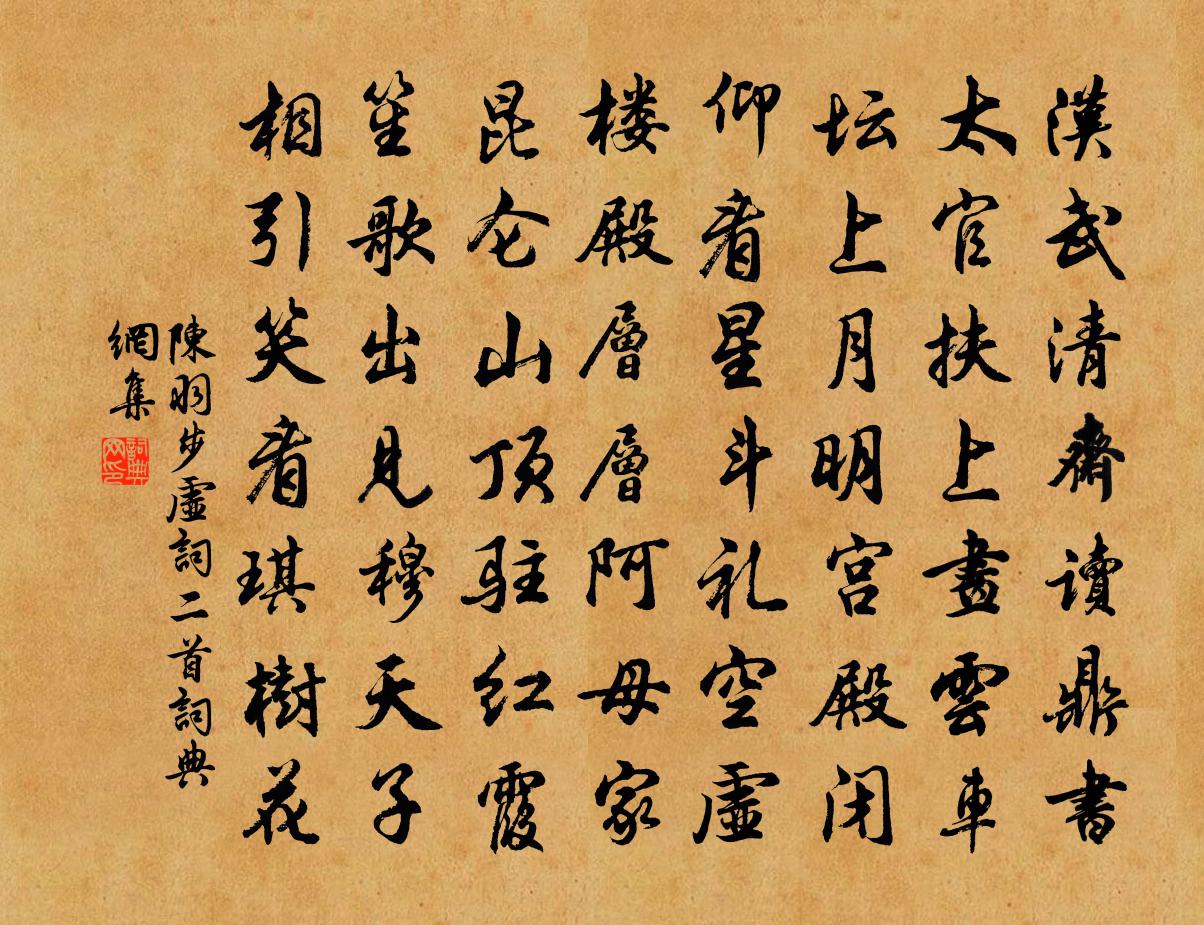 漢武清齋读鼎書
太官扶上畫雲車
坛上月明宫殿闭
仰看星斗礼空虛
楼殿層層阿母家
昆仑山顶驻红霞
笙歌出見穆天子
相引笑看琪樹花
陳羽步虛詞二首詞典
網集
詞典网印